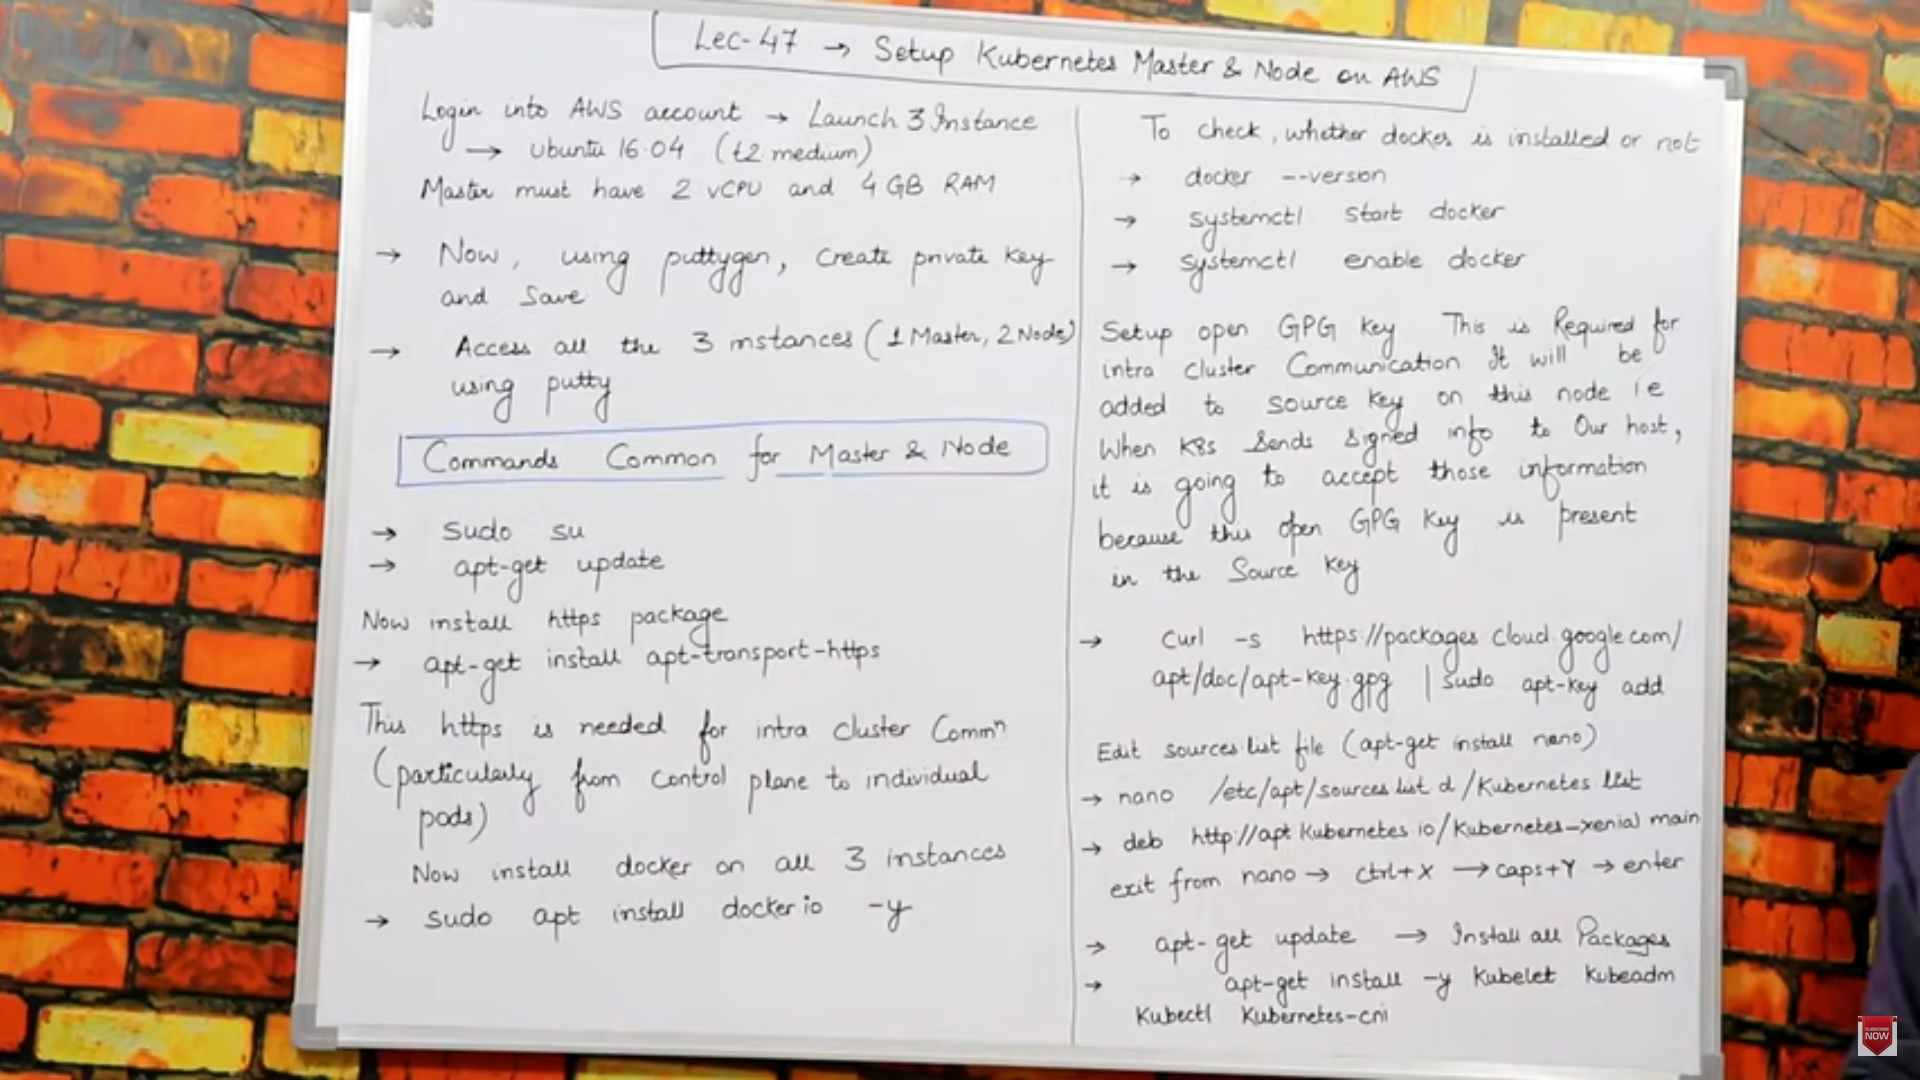 Lec-47 → Setup Kubernetes Master & Node on AWS
Login into AWS account → Launch 3 Instance
→ Ubuntu 16.04 (t2.medium)
Master must have 2 vCPU and 4 GB RAM
→ Now, using puttygen, Create private key
and Save
→ Access all the 3 instances (1 Master, 2 Node)
using putty
Commands Common for Master & Node
→ sudo su
→ apt-get update
Now install https package
→ apt-get install apt-transport-https
This https is needed for intra cluster Commⁿ
(particularly from Control plane to individual
pods)
Now install docker on all 3 instances
→ sudo apt install docker.io -y
To check, whether docker is installed or not
→ docker --version
→ systemctl start docker
→ systemctl enable docker
Setup open GPG Key This is Required for
intra cluster Communication It will be
added to source key on this node i.e
When K8s Sends signed info to Our host,
it is going to accept those information
because this open GPG Key is present
in the Source Key
→ curl -s https://packages.cloud.google.com/
apt/doc/apt-key.gpg | sudo apt-key add
Edit sources.list file (apt-get install nano)
→ nano /etc/apt/sources.list.d/Kubernetes.list
→ deb http://apt.Kubernetes.io/Kubernetes-xenial main
exit from nano → ctrl+X → caps+Y → enter
→ apt-get update → Install all Packages
→ apt-get install -y Kubelet Kubeadm
Kubectl Kubernetes-cni
SUBSCRIBE
NOW